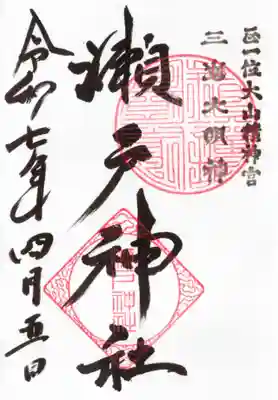 正一位大山積神宮
三島大明神
瀬戸神社
令和七年四月五日